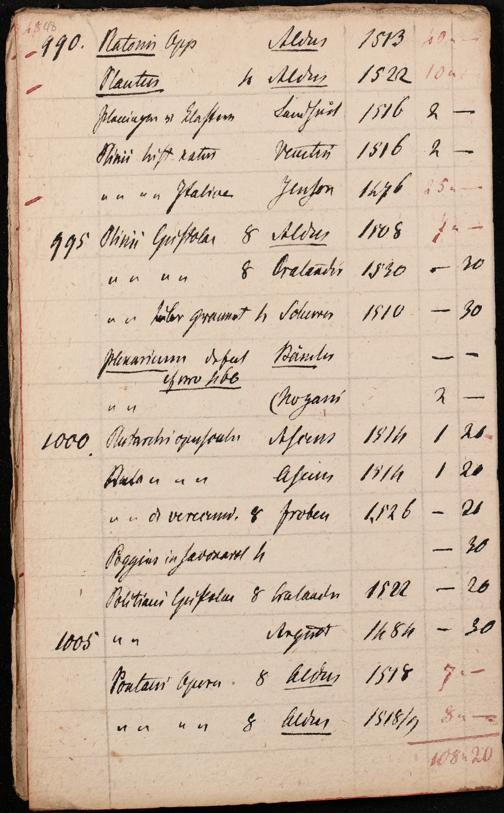 990. Platonis Opp Aldus 1513 40 —
Plautus 4 Aldus 1522 10
1516 2 —
Plinii hist. natur Venetiis 1516 2 —
" " " " Italice Jenson 1476 25 —
995 Plinii Epistolae 8 Aldus 1508 7 —
" " " " 8 Cratander 1530 — 30
" " grammat 4 Schurer 1510 — 30
plenarium defect Bämler — —
" " 2 —
1000. Plutarchi opuscula Ascens 1514 1 20
" " " Ascens 1514 1 20
" " d verecund. 8 Froben 1526 — 20
Poggius in Savonarol 4 — 30
Politiani Epistolae 8 Cratander 1522 — 20
1005 " " August 1484 — 30
Pontani Opera. 8 Aldus 1518 7 —
" " " " 8 Aldus 1518/9 8 —
108 " 20